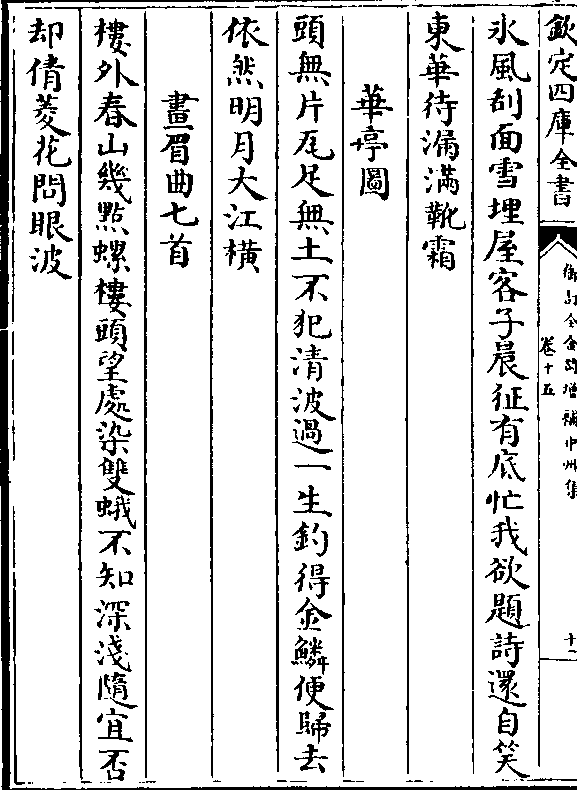 欽定四庫全書
御訂全金詩增補中州集
卷十五
十一
氷風刮面雪埋屋客子晨征有底忙我欲題詩還自笑
東華待漏滿靴霜
華亭圖
頭無片瓦足無土不犯清波過一生釣得金鱗便歸去
依然明月大江橫
畫眉曲七首
樓外春山幾點螺樓頭望處染雙蛾不知深淺隨宜否
却倩菱花問眼波